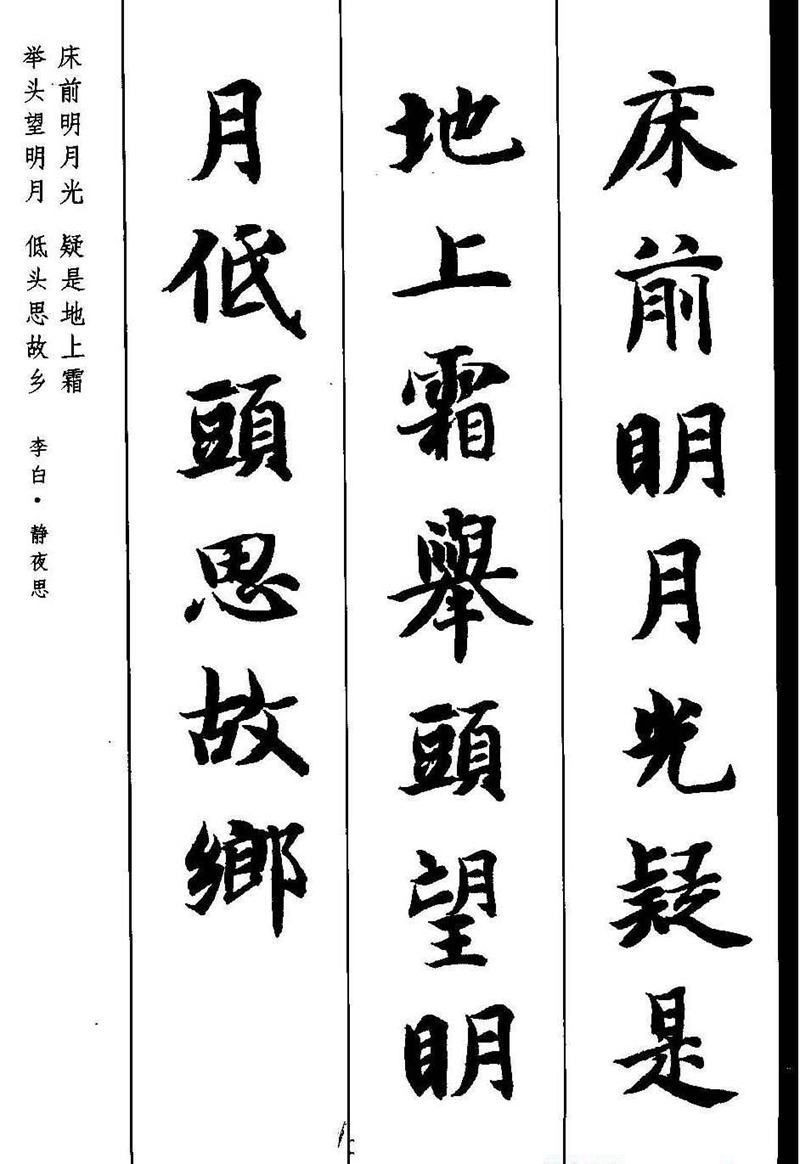 床前明月光疑是
地上霜舉頭望明
月低頭思故鄉
床前明月光 疑是地上霜
举头望明月 低头思故乡
李白·静夜思